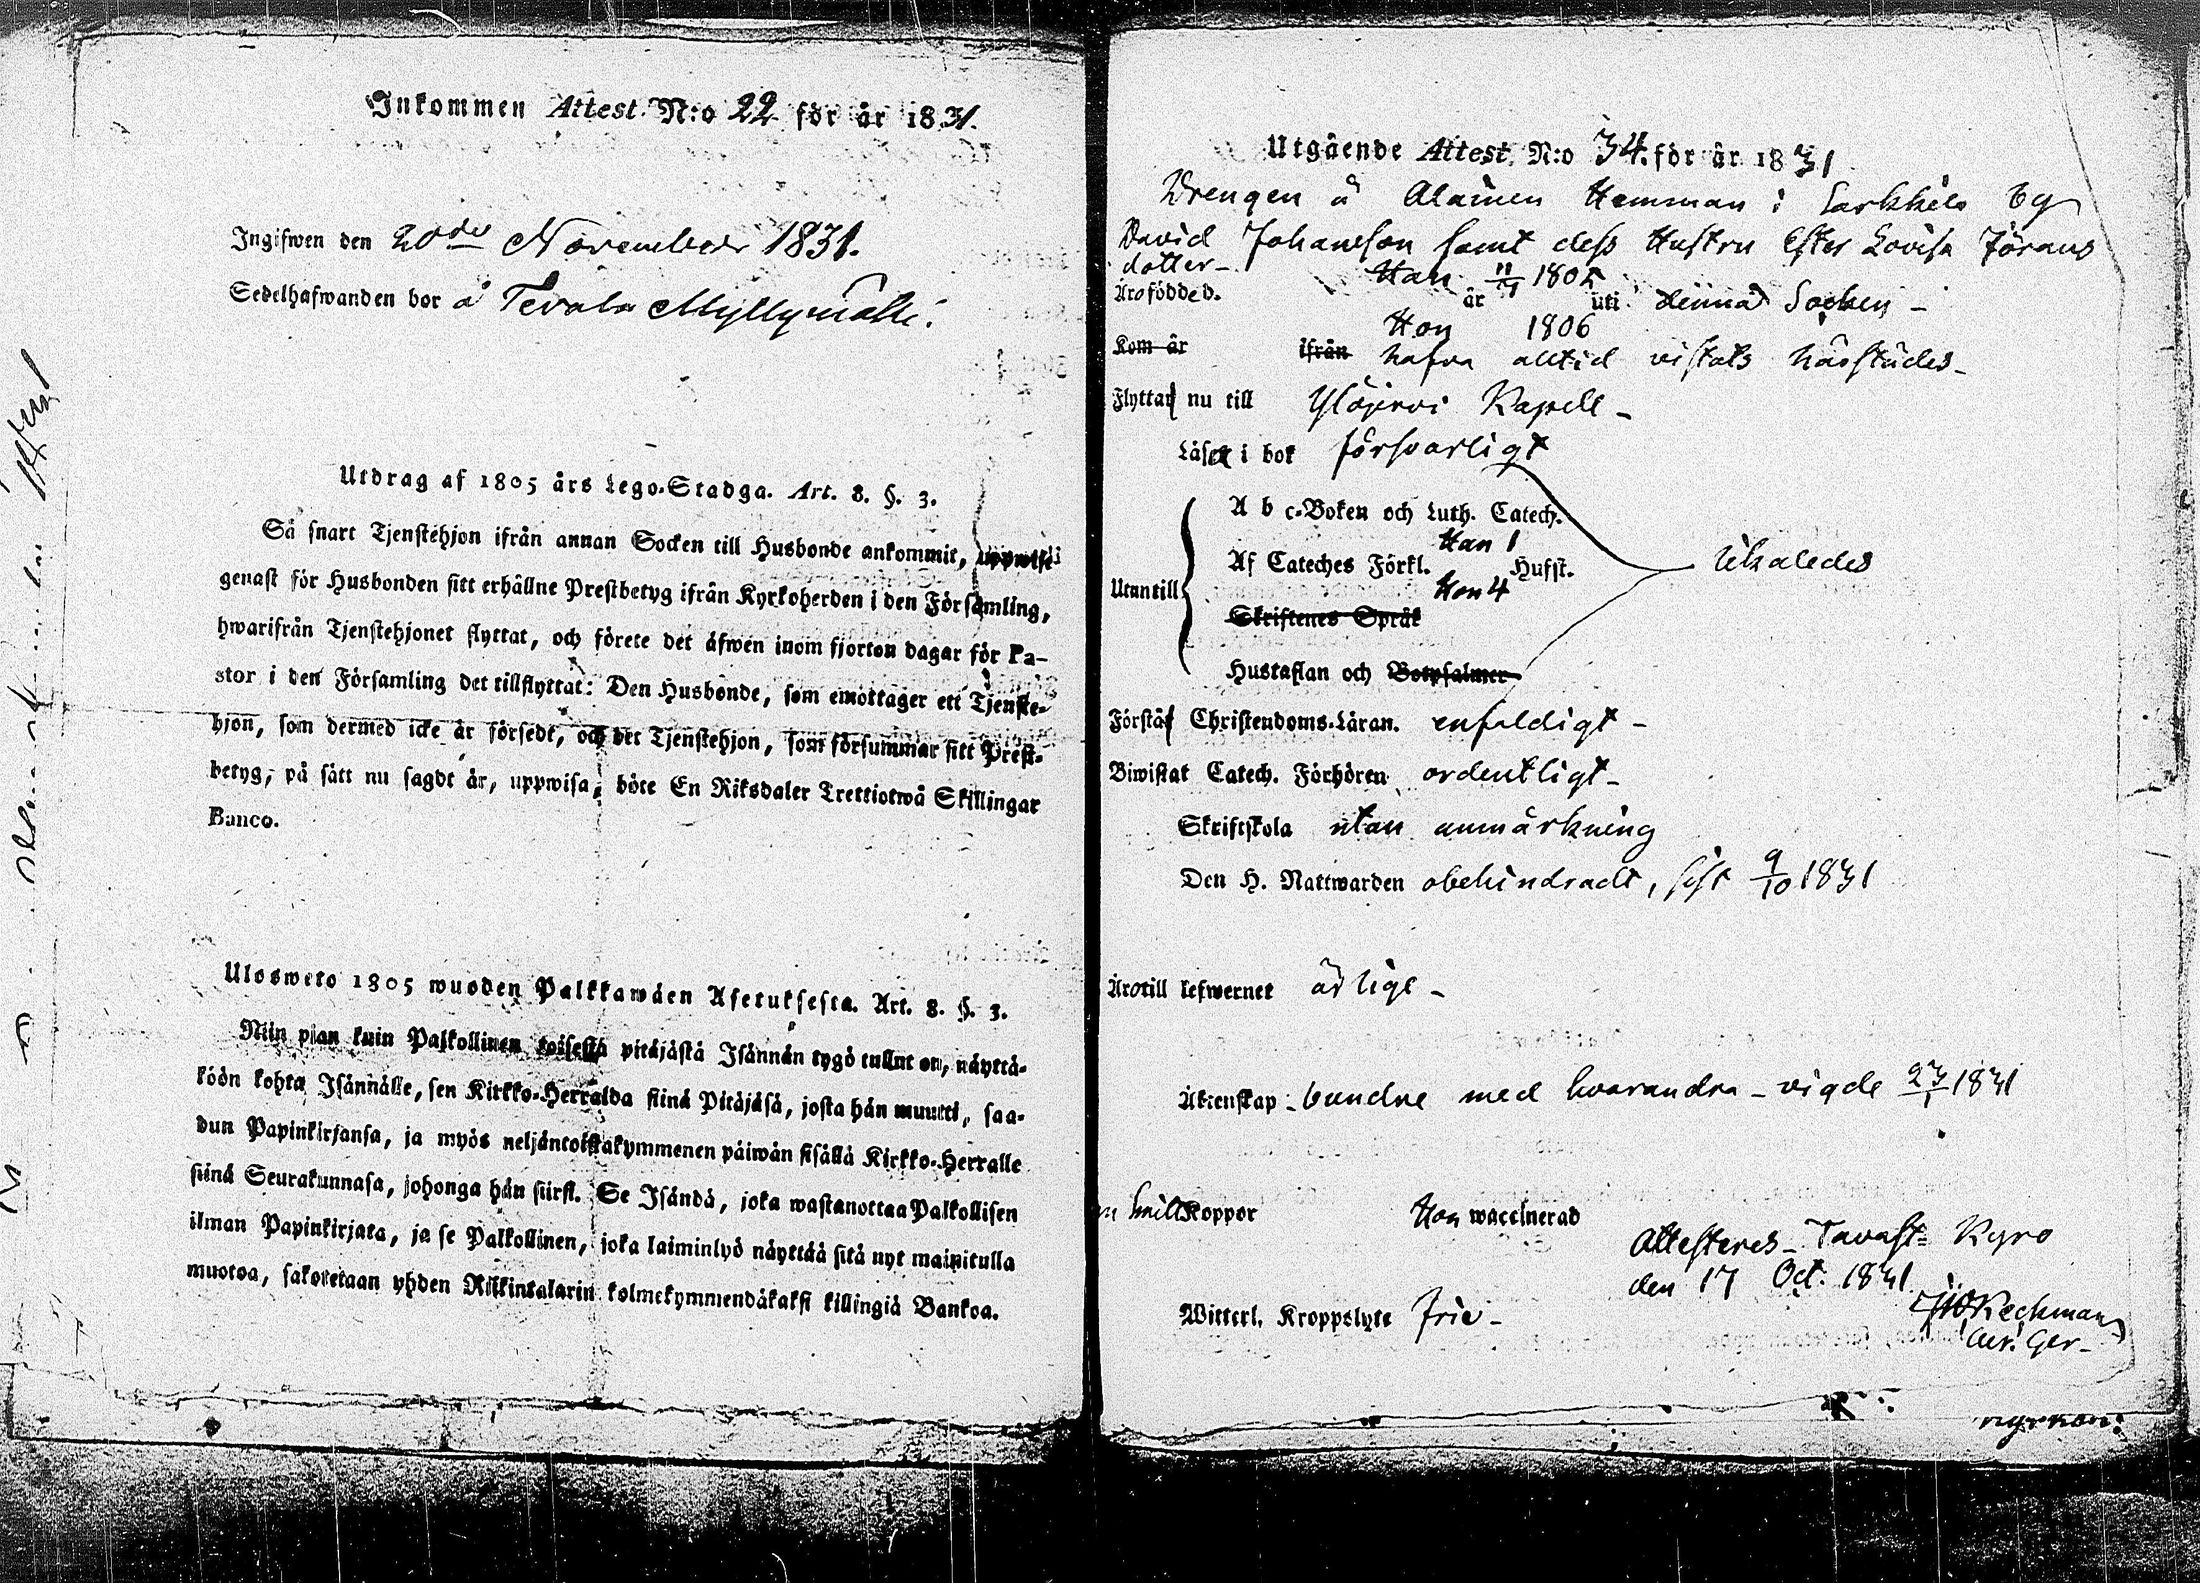 Inkommen Attest. N:o 22 för år 1831.
Ingifwen den 20de November 1831.
Sedelhafwanden bor å Tevala Myllymäki.
Utdrag af 1805 års Lego-Stadga. Art. 8. §. 3.
Så snart Tjenstehjon ifrån annan Socken till Husbonde ankommit, uppwise
genast för Husbonden sitt erhållne Prestbetyg ifrån Kyrkoherden i den Församling,
hwarifrån Tjenstehjonet flyttat, och förete det äfwen inom fjorton dagar för Pa-
stor i den Församling det tillflyttat: Den Husbonde, som emottager ett Tjenste-
hjon, som dermed icke är försedt, och det Tjenstehjon, som försummar sitt Prest-
betyg, på sätt nu sagdt är, uppwisa, böte En Riksdaler Trettiotwå Skillingar
Banco.
Ulosweto 1805 wuoden Palkkawäen Asetuksesta. Art. 8. §. 3.
Niin pian kuin Palkollinen toisesta pitäjästä Isännän tygö tullut on, näyttä-
köön kohta Isännälle, sen Kirkko-Herralda siinä Pitäjäsä, josta hän muutti, saa-
dun Papinkirjansa, ja myös neljäntoistakymmenen päiwän sisällä Kirkko-Herralle
siinä Seurakunnasa, johonga hän siirsi. Se Isändä, joka wastanottaa Palkollisen
ilman Papinkirjata, ja se Palkollinen, joka laiminlyö näyttää sitä nyt mainitulla
muotoa, sakotetaan yhden Riikintalarin kolmekymmendäkaksi killingiä Bankoa.
Utgående Attest. N:o 34. för år 1831
Drengen å Alainen Hemman i Sarkkila by
David Johansson samt dess Hustru Ester Lovisa Jörans
dotter-
Han 1802
Äro födded. år uti denna Socken -
Hon 1806
Kom år ifrån hafva alltid vistats härstädes -
Flytta nu till Ylöjervi Kapell -
Läsa i bok försvarligt
A b c-Boken och Luth. Catech.
Han 1
Utantill Af Cateches Förkl. Husst. likaledes
Hon 4
Skriftenes Språk
Hustaflan och Botpsalmer
Förstå Christendoms-Läran. enfaldigt -
Biwistat Catech. Förhören ordentligt -
Skriftskola utan anmärkning
Den H. Nattwarden obehindradt, sist 9/10 1831
Äro till lefwernet ärlige -
Äktenskap - bundne med hvarandra - vigde 23/1 1831
Koppor Hon waccinerad
Attesteres - Tavast= Kyro
den 17 Oct. 1831.
Witterl. Kroppslyte frie -